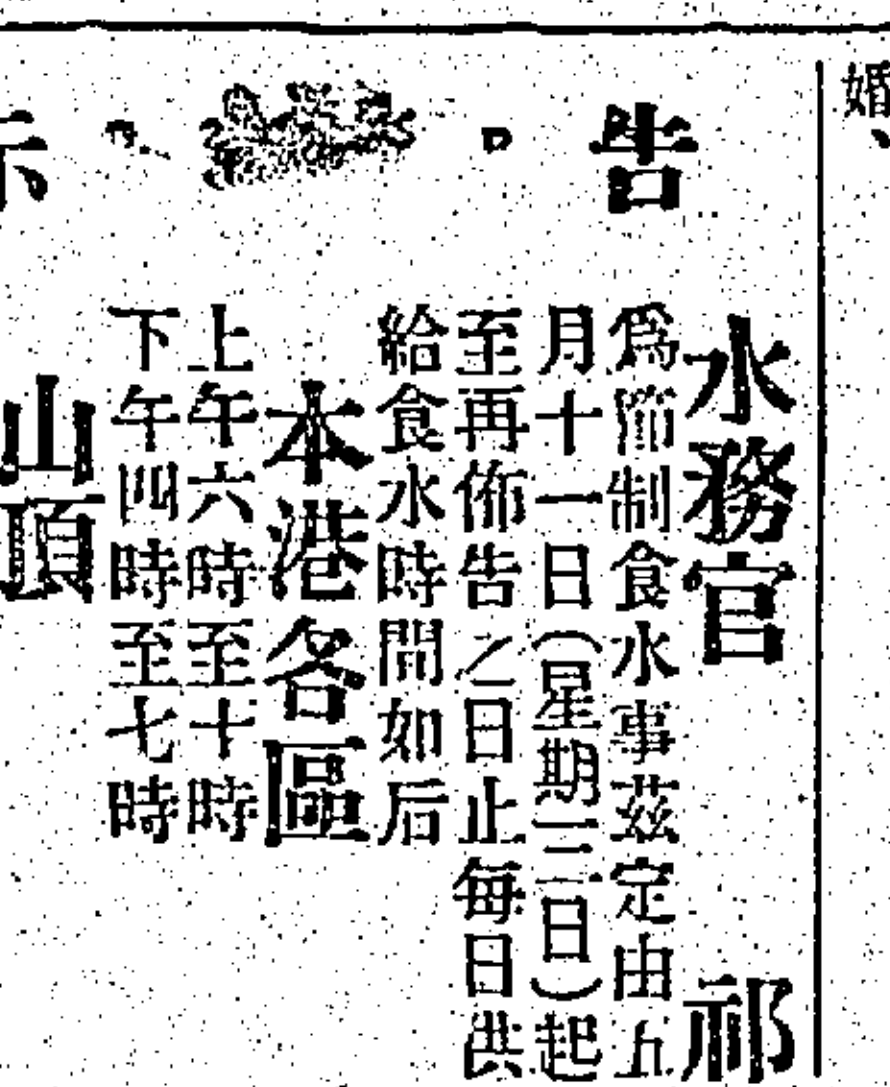 告 示
婚、
水務官 祁
爲節制食水事茲定由五
月十一日(星期三日)起
至再佈告之日止每日供
給食水時間如后
本港各區
上午六時至十時
下午四時至七時
山頂